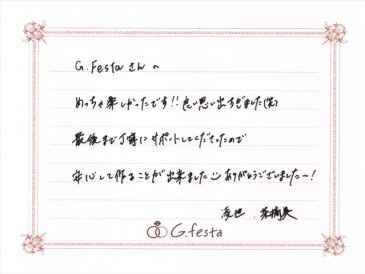 G.festa さんへ
めっちゃ楽しかったです!!良い思い出できました(笑)
最後まで丁寧にサポートしてくださったので
安心して作ることが出来ました ありがとうございました〜!
G.festa